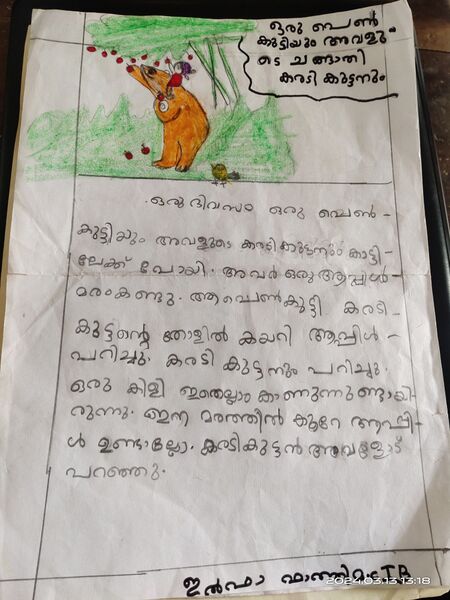 ഒരു പെൺ
കുട്ടിയും അവളു
ടെ ചങ്ങാതി
കരടി കുട്ടനും
ഒരു ദിവസം ഒരു പെൺ-
കുട്ടിയും അവളുടെ കരടികുട്ടനും കാട്ടി-
ലേക്ക് പോയി. അവർ ഒരു ആപ്പിൾ-
മരംകണ്ടു. ആ പെൺകുട്ടി കരടി-
കുട്ടന്റെ തോളിൽ കയറി ആപ്പിൾ-
പറിച്ചു. കരടി കുട്ടനും പറിച്ചു.
ഒരു കിളി ഇതെല്ലാം കാണുന്നുണ്ടായി-
രുന്നു. ഇനി മരത്തിൽ കുറേ ആപ്പി-
ൾ ഉണ്ടല്ലോ. കരടികുട്ടൻ അവളോട്
പറഞ്ഞു.
ഇർഫാ ഫാത്തിമ. TB
2024.03.13 13:18